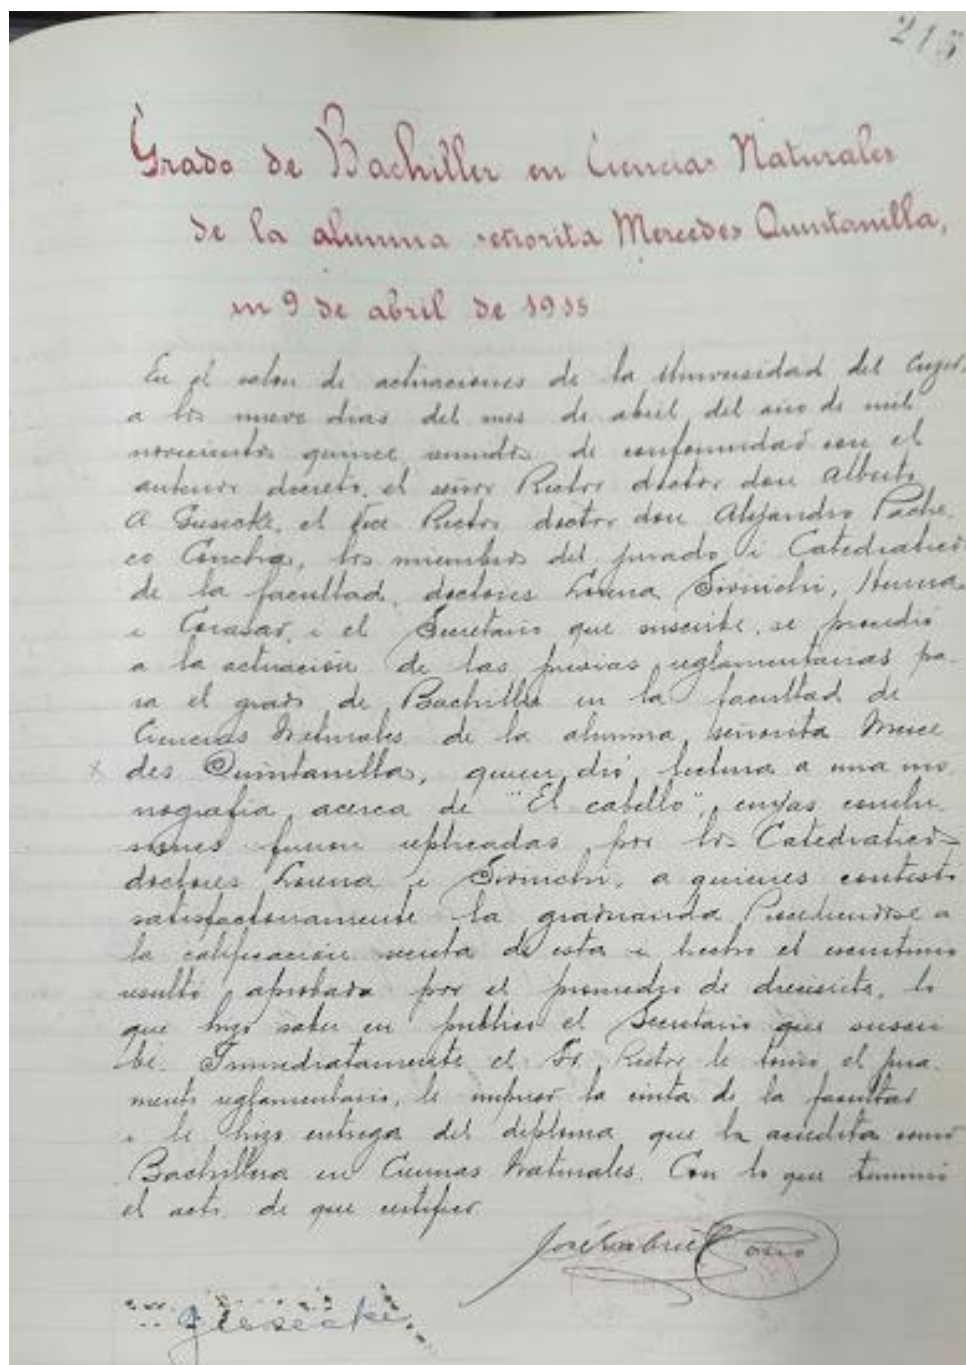 215
Grado de Bachiller en Ciencias Naturales
de la alumna señorita Mercedes Quintanilla,
en 9 de abril de 1915
En el salon de actuaciones de la Universidad del Cuzco,
a los nueve dias del mes de abril del año de mil
novecientos quince reunidos de conformidad con el
anterior decreto, el señor Rector doctor don Alberto
A Giesecke, el Vice Rector doctor don Alejandro Pache
co Concha, los miembros del jurado i Catedraticos
de la facultad, doctores Lorena Sivirichi, Herrera
i Corazao, i el Secretario que suscribe, se procedió
a la actuación de las previas reglamentarias pa-
ra el grado de Bachiller en la facultad de
Ciencias Naturales de la alumna señorita Merce
x des Quintanilla, quien dió lectura a una mo
nografia acerca de "El cabello", cuyas conclu
siones fueron replicadas por los Catedraticos
doctores Lorena i Sivirichi, a quienes contestó
satisfactoriamente la graduanda Procediendose a
la calificación secreta de esta i hecho el escrutinio
resultó aprobada por el promedio de diecisiete, lo
que hizo saber en público el Secretario que suscri
be. Inmediatamente el Sr. Rector le tomó el jura
mento reglamentario, le impuso la cinta de la facultad
i le hizo entrega del diploma que la acredita como
Bachillera en Ciencias Naturales. Con lo que terminó
el acto de que certifico.
José Gabriel Cosio
Giesecke